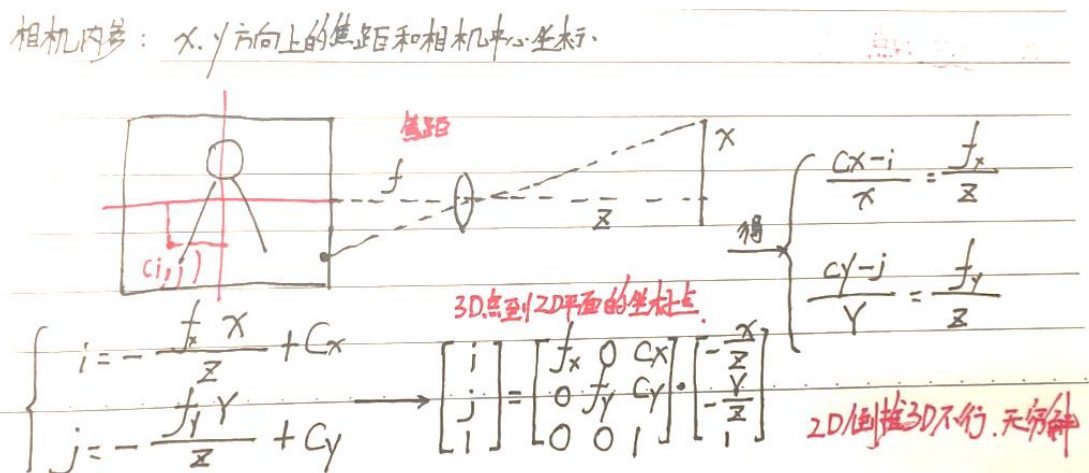 相机内参: x.y方向上的焦距和相机中心坐标.
焦距
f
x
z
(i,j)
得
\frac{cx-i}{x} = \frac{f_x}{z}
\frac{cy-j}{Y} = \frac{f_y}{z}
3D点到2D平面的坐标点.
i = -\frac{f_x x}{z} + Cx
j = -\frac{f_y Y}{z} + Cy
\begin{bmatrix} i \\ j \\ 1 \end{bmatrix} = \begin{bmatrix} f_x & 0 & Cx \\ 0 & f_y & Cy \\ 0 & 0 & 1 \end{bmatrix} \cdot \begin{bmatrix} -\frac{x}{z} \\ -\frac{Y}{z} \\ 1 \end{bmatrix}
2D倒推3D不行.无穷解